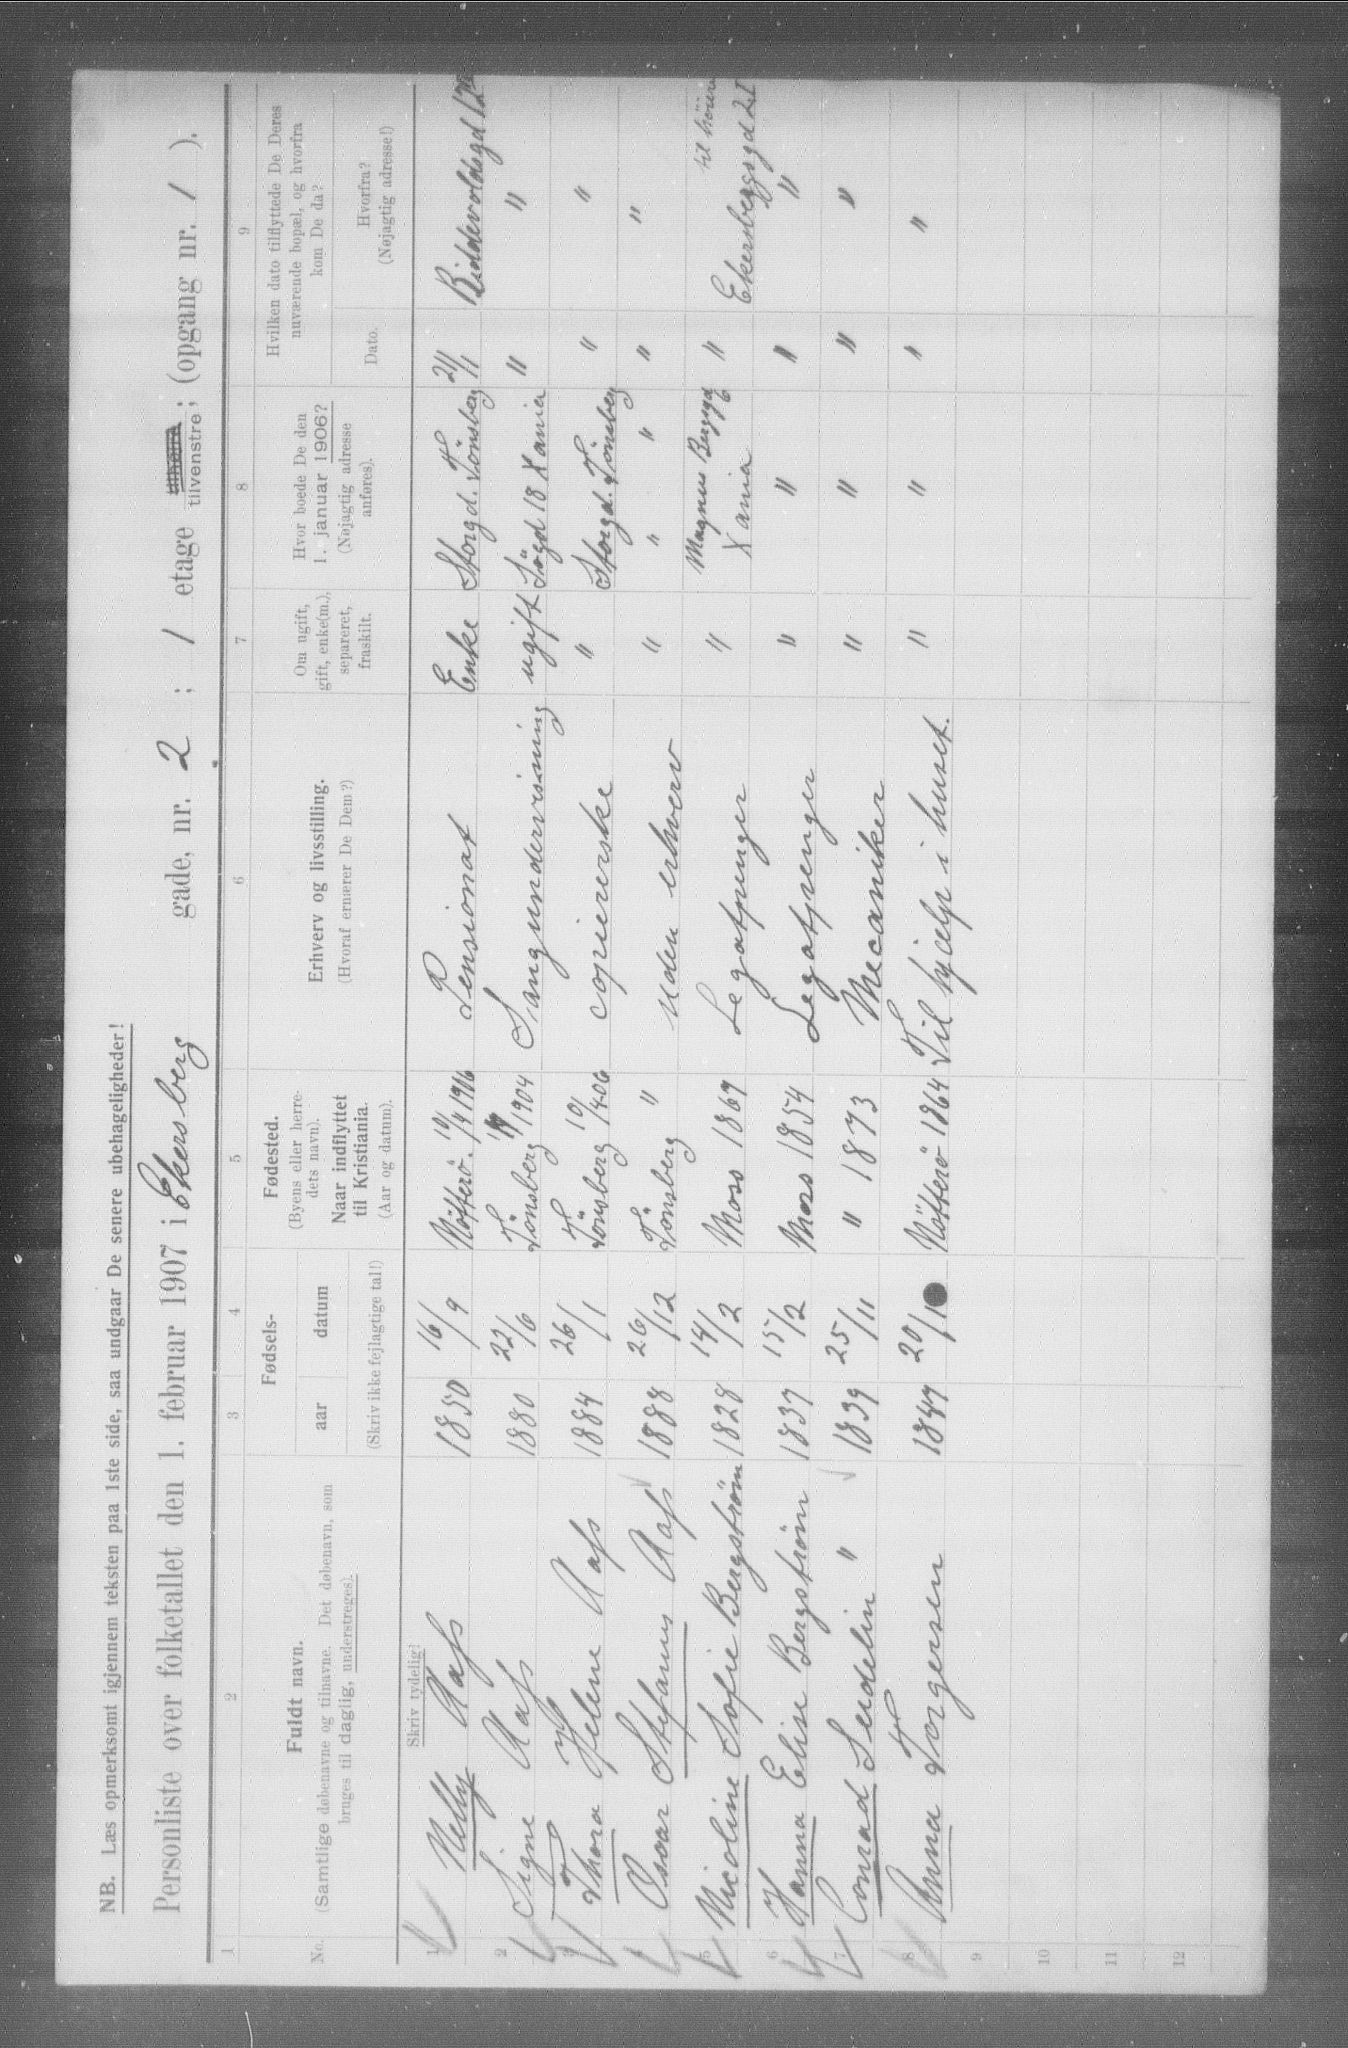 NB. Læs opmerksomt igjennem teksten paa 1ste side, saa undgaar De senere ubehageligheder!
Personliste over folketallet den 1. februar 1907 i Ekersberg gade, nr. 2 ; 1 etage tilvenstre ; (opgang nr. 1 ).
1 2 3 4 5 6 7 8 9
No.
Fuldt navn.
(Samtlige døbenavne og tilnavne. Det døbenavn, som
bruges til daglig, understreges).
Fødsels-
aar datum
(Skriv ikke fejlagtige tal!)
Fødested.
(Byens eller herre-
dets navn).
Naar indflyttet
til Kristiania.
(Aar og datum).
Erhverv og livsstilling.
(Hvoraf ernærer De Dem?)
Om ugift,
gift, enke(m.),
separeret,
fraskilt.
Hvor boede De den
1. januar 1906?
(Nøjagtig adresse
anføres).
Hvilken dato tilflyttede De Deres
nuværende bopæl, og hvorfra
kom De da?
Dato.
Hvorfra?
(Nøjagtig adresse!)
Skriv tydelig!
1 Nelly Aass 1850 16/9 Nötterö. 1906 Pensionat Enke Storgd. Tönsberg 21/1
2 Signe Aass 1880 22/6 Tönsberg 1904 Sangundervisning ugift 18 Xania " "
3 Thora Helene Aass 1884 26/1 Tönsberg 10/1406 copiererske " Storgd. Tönsberg " "
4 Oscar Stefanus Aass 1888 26/12 Tönsberg " uden erhverv " " " " "
5 Nicoline Sofie Bergström 1828 14/2 Moss 1869 Legatpenger " Magnus Bergsgd 6 Xania " til høire Ekersbergsgd 2I
6 Hanna Elise Bergström 1837 15/2 Moss 1854 Legatpenger " " " "
7 Conrad Sendelin " 1839 25/11 " 1873 Mecaniker " " " "
8 Anna Torgersen 1847 Nötterö 1864 Til hjælp i huset. " " " "
9
10
11
12